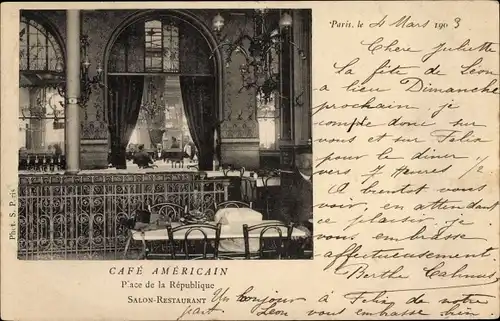 Paris, le 4 Mars 1903
Chere Juliette
La fête de Léon
a lieu Dimanche
prochain je
compte donc sur
vous et sur Felix
pour le diner
vers 7 Heures je
A bientot vous
voir, en attendant
ce plaisir je
vous embrasse
affectueusement.
Berthe Cahmus
Phot. S. P.
CAFÉ AMÉRICAIN
Place de la République
SALON-RESTAURANT
Un bonjour à Felix de notre
part. Léon vous embrasse bien.